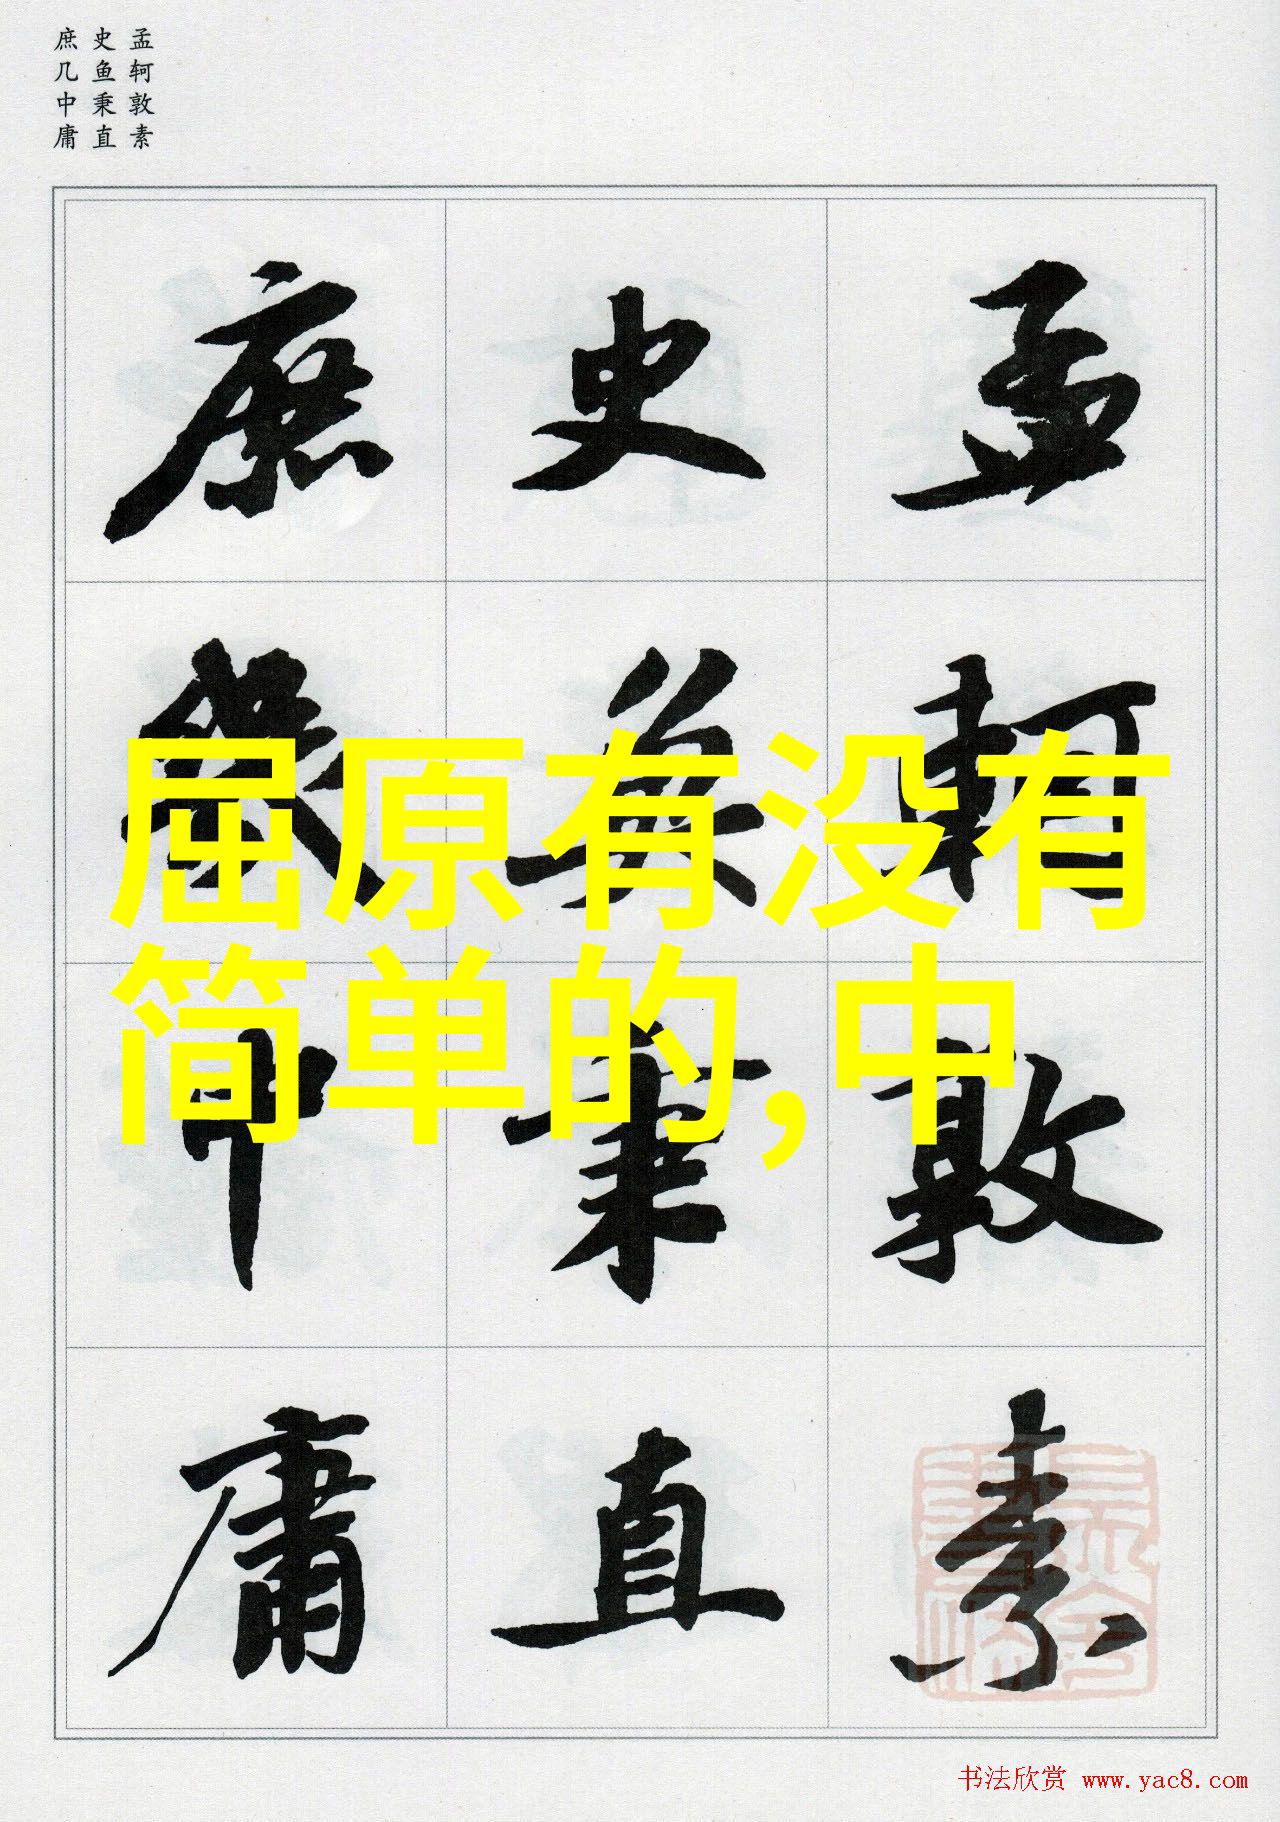 孟轲敦素
史鱼秉直
庶几中庸
孟轲敦素
史鱼秉直
庶几中庸
屈原有没有
简单的,中
书法欣赏 www.yac8.com